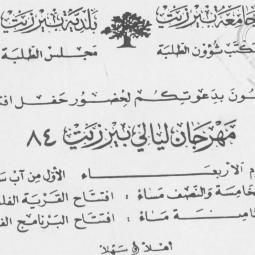 جامعة بيرزيت بلدية بيرزيت
مكتب شؤون الطلبة مجلس الطلبة
بدعوتكم لحضور حفل
مهرجان ليالي بيرزيت ٨٤
الأربعاء الأول من آب
والنصف مساء : افتتاح القرية
مساء : افتتاح البرنامج
أهلا و سهلا